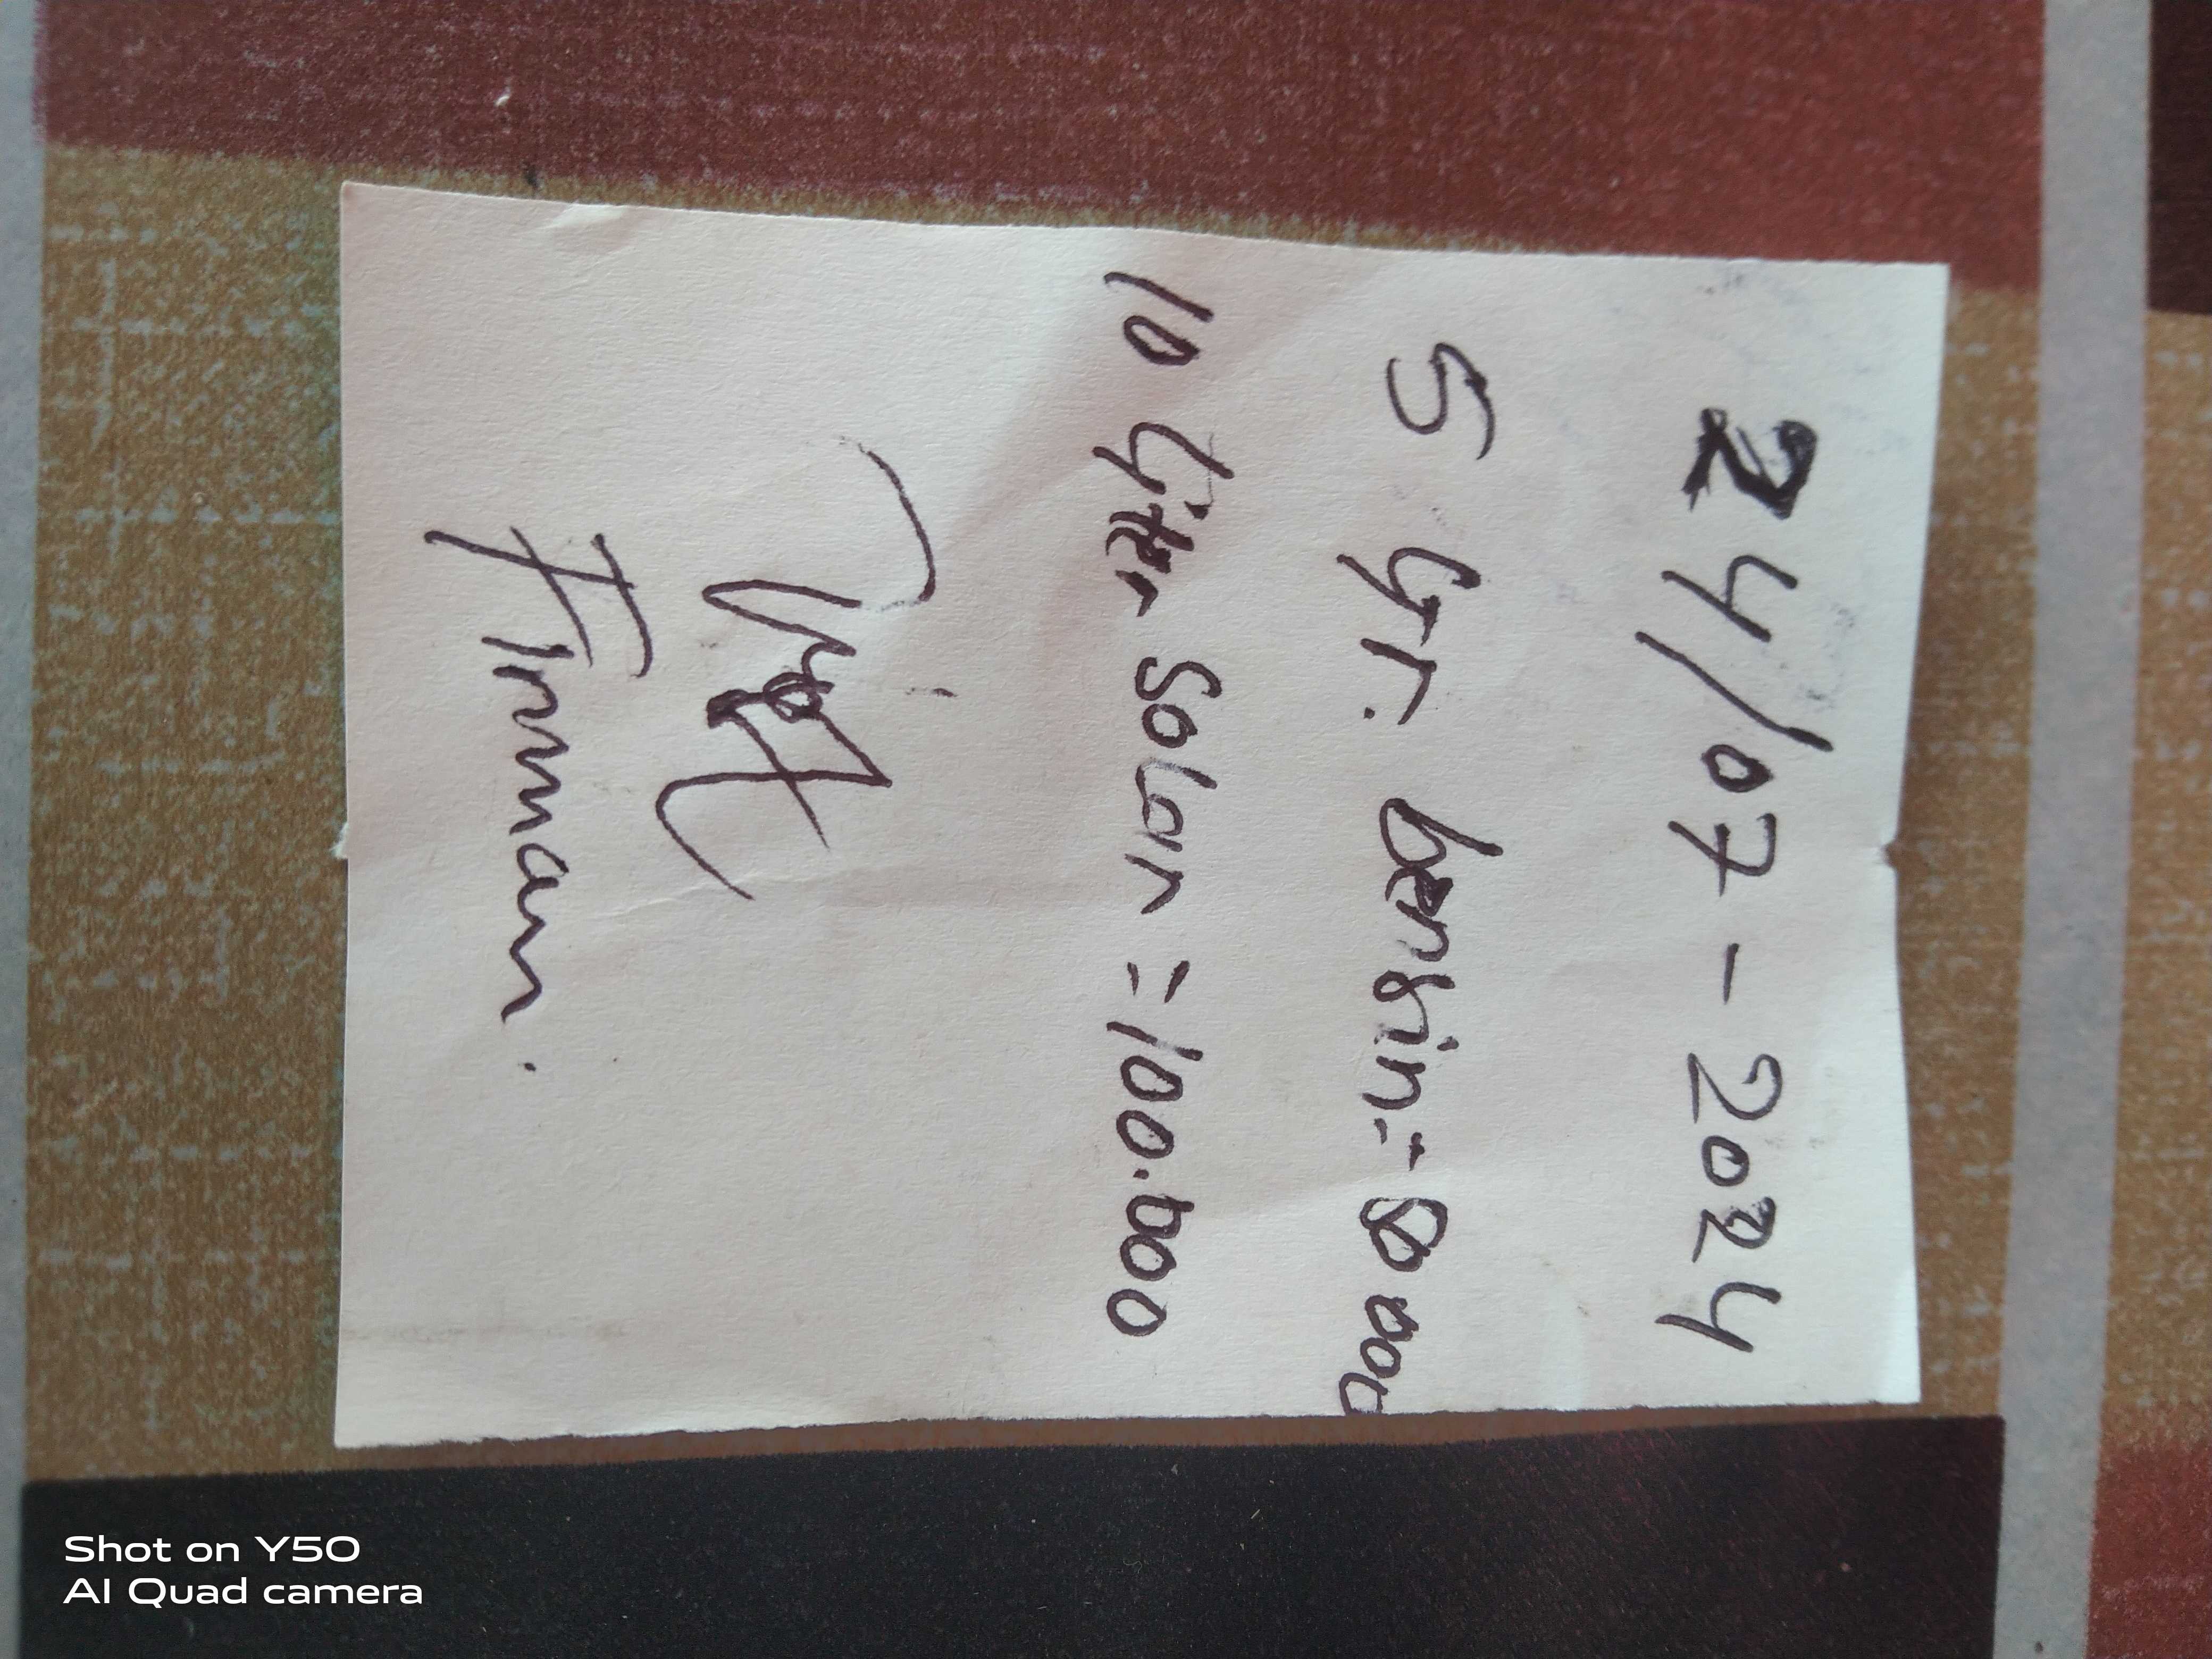 24/07-2024
5 Ltr. bensin =
10 Liter Solar = 100.000
Firman.
Shot on Y50
AI Quad camera